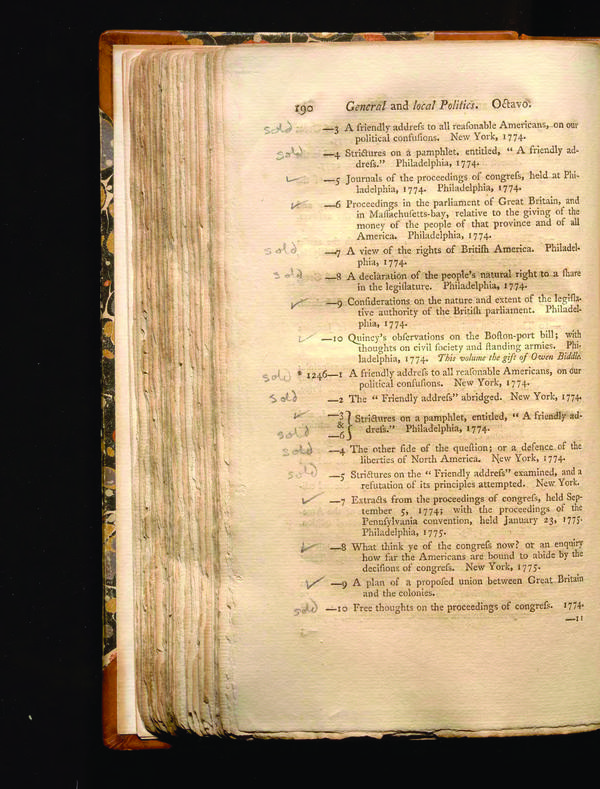 190 General and local Politics. Octavo.
sold —3 A friendly addreſs to all reaſonable Americans, on our
political confuſions. New York, 1774.
sold —4 Strictures on a pamphlet, entitled, “ A friendly ad-
dreſs.” Philadelphia, 1774.
✓ —5 Journals of the proceedings of congreſs, held at Phi-
ladelphia, 1774. Philadelphia, 1774.
✓ —6 Proceedings in the parliament of Great Britain, and
in Maſſachuſetts-bay, relative to the giving of the
money of the people of that province and of all
America. Philadelphia, 1774.
sold —7 A view of the rights of Britiſh America. Philadel-
phia, 1774.
sold —8 A declaration of the people's natural right to a ſhare
in the legiſlature. Philadelphia, 1774.
✓ —9 Conſiderations on the nature and extent of the legiſla-
tive authority of the Britiſh parliament. Philadel-
phia, 1774.
✓ —10 Quincy's obſervations on the Boſton-port bill; with
thoughts on civil ſociety and ſtanding armies. Phi-
ladelphia, 1774. This volume the gift of Owen Biddle.
sold * 1246—1 A friendly addreſs to all reaſonable Americans, on our
political confuſions. New York, 1774.
sold —2 The “ Friendly addreſs” abridged. New York, 1774.
✓ —3
& } Strictures on a pamphlet, entitled, “ A friendly ad-
sold —6 dreſs.” Philadelphia, 1774.
sold —4 The other ſide of the queſtion; or a defence of the
liberties of North America. New York, 1774.
sold —5 Strictures on the “ Friendly addreſs” examined, and a
refutation of its principles attempted. New York.
✓ —7 Extracts from the proceedings of congreſs, held Sep-
tember 5, 1774; with the proceedings of the
Pennſylvania convention, held January 23, 1775.
Philadelphia, 1775.
✓ —8 What think ye of the congreſs now? or an enquiry
how far the Americans are bound to abide by the
deciſions of congreſs. New York, 1775.
✓ —9 A plan of a propoſed union between Great Britain
and the colonies.
sold —10 Free thoughts on the proceedings of congreſs. 1774.
—11